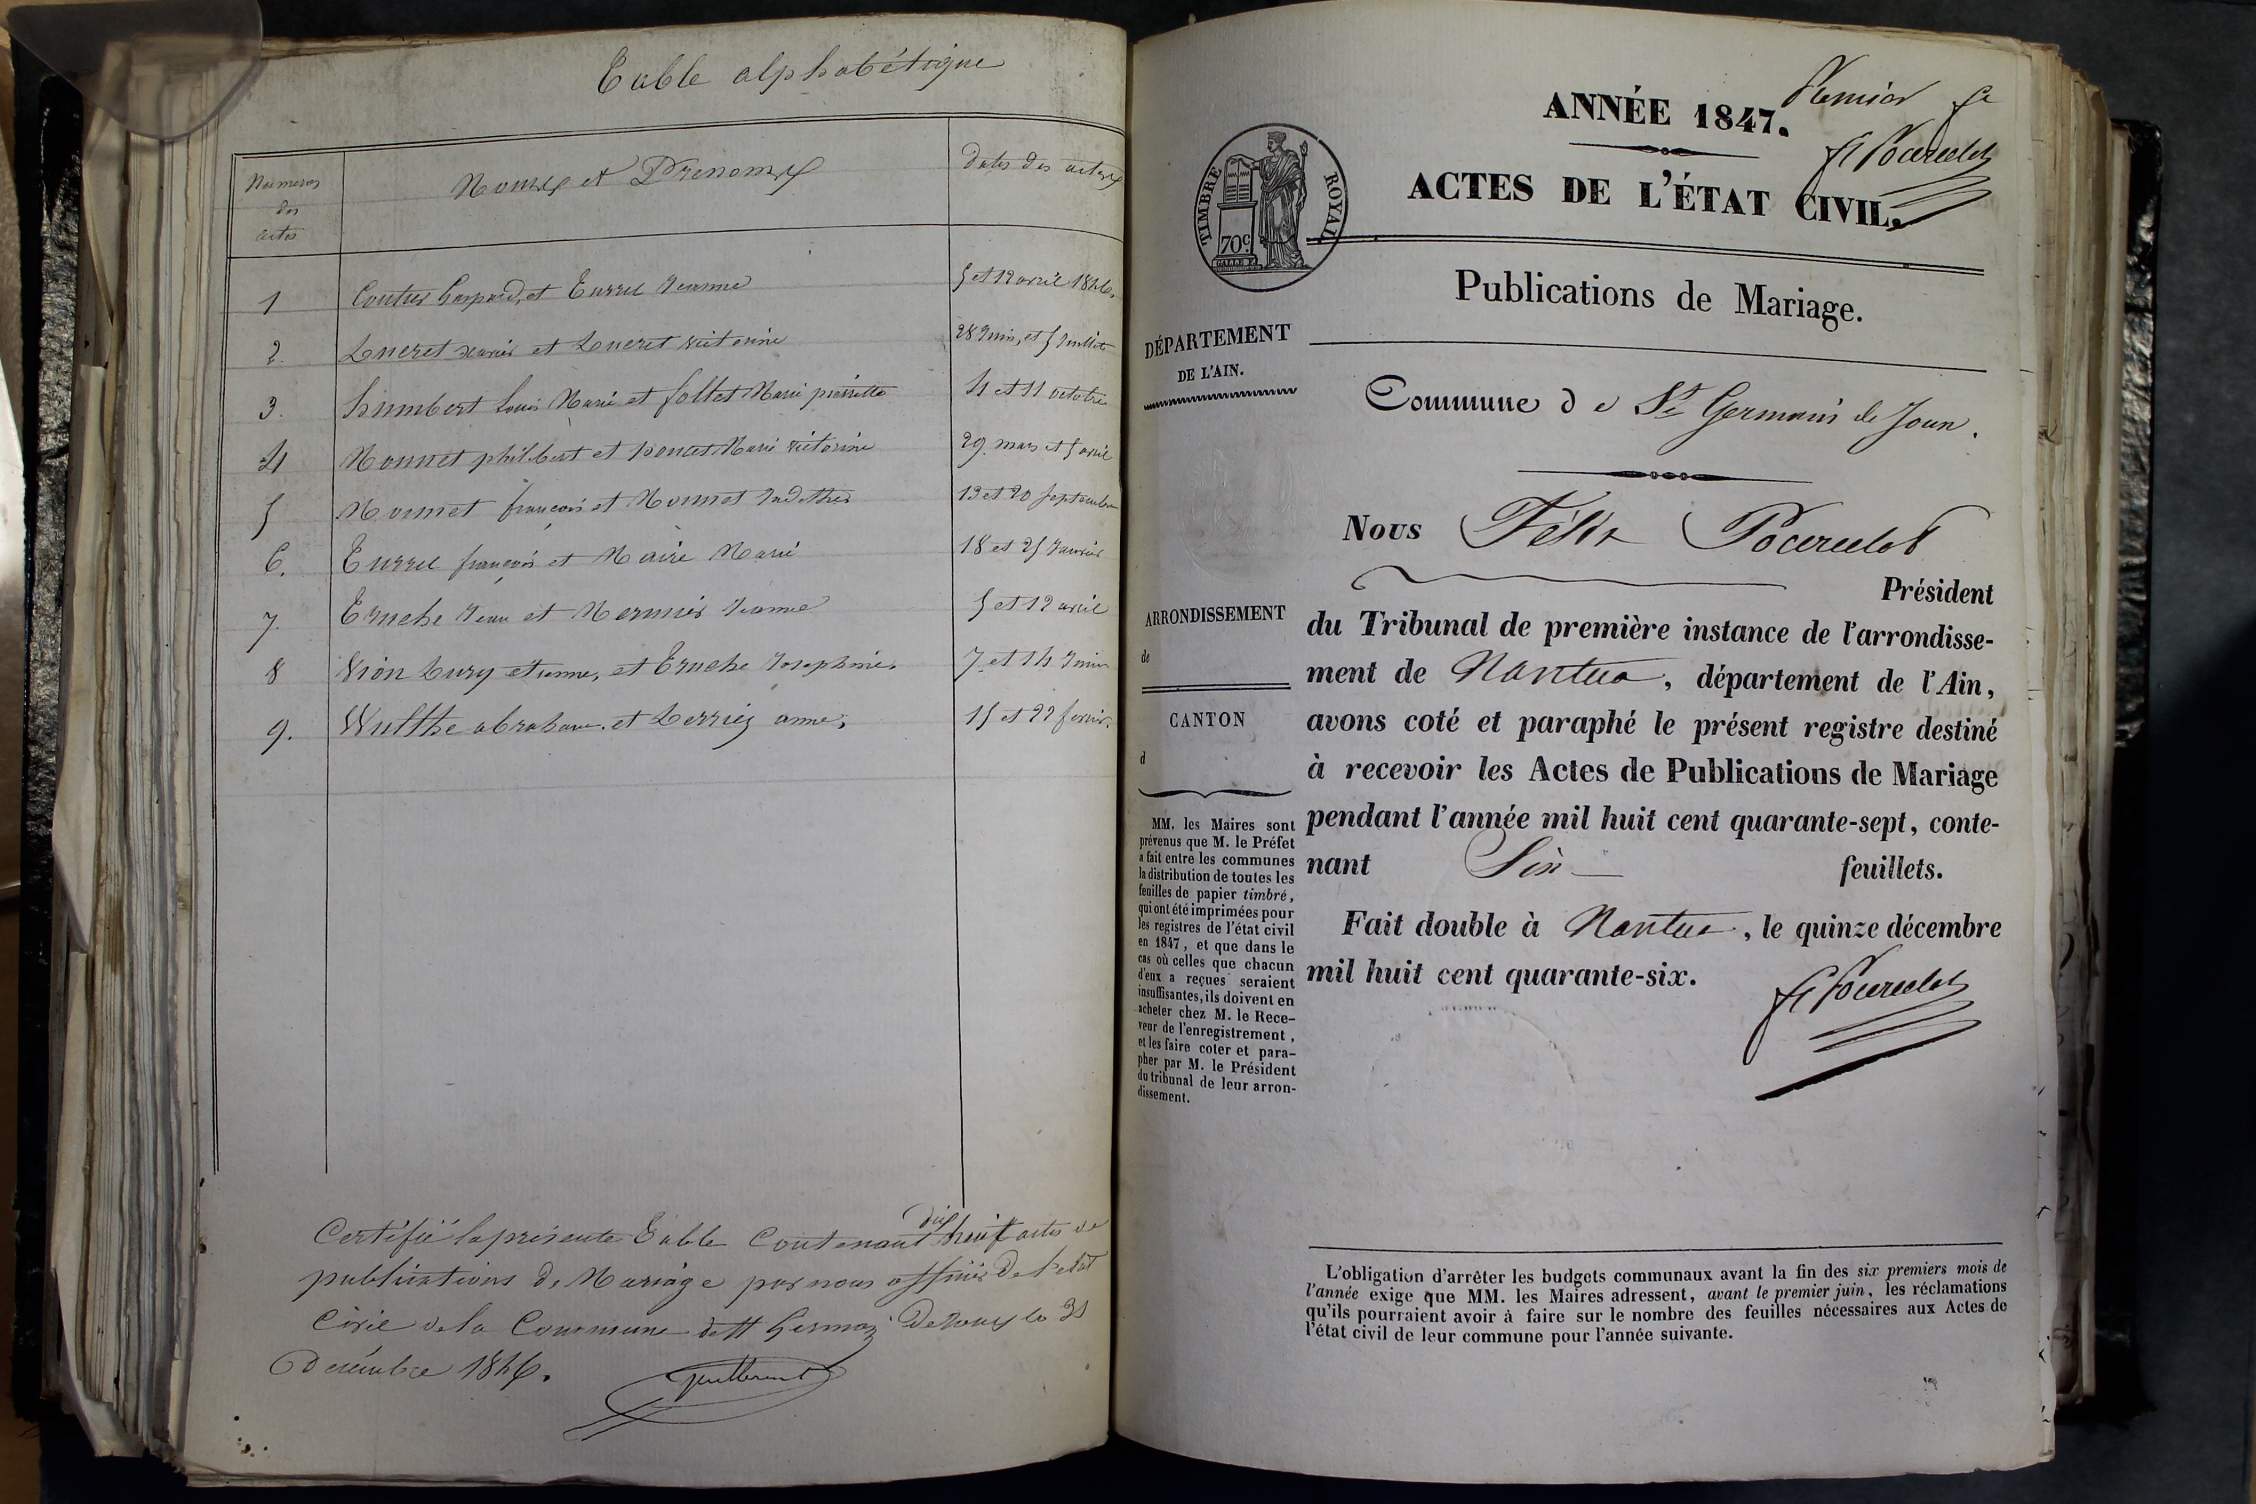 Table alphabétique
Numeros
des
actes
Noms et Prenoms
dates des actes
1 Coutier Gaspard, et Turrel Jeanne 5 et 12 avril 1846.
2. Lucret et Lucret victorine 28 Juin, et 5 Juillet
3. humbert Louis Marie et follet Marie pierrette 4 et 11 octobre
4 Monnet philibert et poncet Marie victorine 29. mars et 5 avril
5 Monnet françois et Monnet 13 et 20 septembre
6. Turrel françois et Maire Marie 18 et 25 Janvier
7. Truche Jean et Mermier Jeanne 5 et 12 avril
8 Vion Lury etienne, et Truche Josephine. 7 et 14 Juin
9. Wulthe abraham. et anne, 15 et 22
Certifié la présente Table Contenant dix huit actes de
publications de Mariage par nous officier De l'etat
Civil de la Commune de St Germain De Joux le 31
Decembre 1846.
ANNÉE 1847.
Premier fe
fx Pocurelot
ACTES DE L'ÉTAT CIVIL.
TIMBRE ROYAL
70c
Publications de Mariage.
DÉPARTEMENT
DE L'AIN.
Commune d e St Germain de Joux.
Nous Félix Pocurelot
Président
ARRONDISSEMENT
de
CANTON
d
du Tribunal de première instance de l'arrondisse-
ment de Nantua, département de l'Ain,
avons coté et paraphé le présent registre destiné
à recevoir les Actes de Publications de Mariage
pendant l'année mil huit cent quarante-sept, conte-
nant Six feuillets.
Fait double à Nantua, le quinze décembre
mil huit cent quarante-six.
fx Pocurelot
MM. les Maires sont
prévenus que M. le Préfet
a fait entre les communes
la distribution de toutes les
feuilles de papier timbré,
qui ont été imprimées pour
les registres de l'état civil
en 1847, et que dans le
cas où celles que chacun
d'eux a reçues seraient
insuffisantes, ils doivent en
acheter chez M. le Rece-
veur de l'enregistrement,
et les faire coter et para-
pher par M. le Président
du tribunal de leur arron-
dissement.
L'obligation d'arrêter les budgets communaux avant la fin des six premiers mois de
l'année exige que MM. les Maires adressent, avant le premier juin, les réclamations
qu'ils pourraient avoir à faire sur le nombre des feuilles nécessaires aux Actes de
l'état civil de leur commune pour l'année suivante.